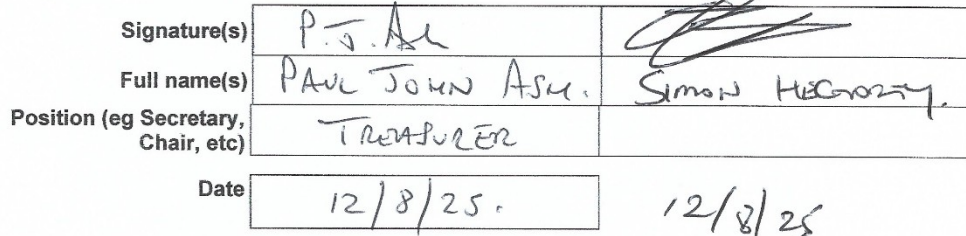 Signature(s) P.J. Ash
Full name(s) PAUL JOHN ASH. SIMON HEGARTY.
Position (eg Secretary,
Chair, etc) TREASURER
Date 12/8/25. 12/8/25